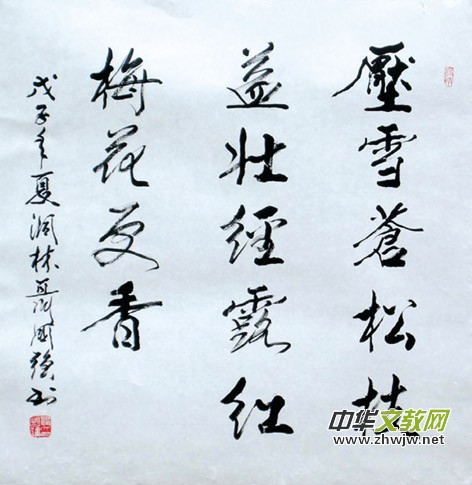 壓雪蒼松枝
益壯經霜紅
梅花更香
戊子年夏洞林聂国强书
中华文教网
www.zhwjw.net